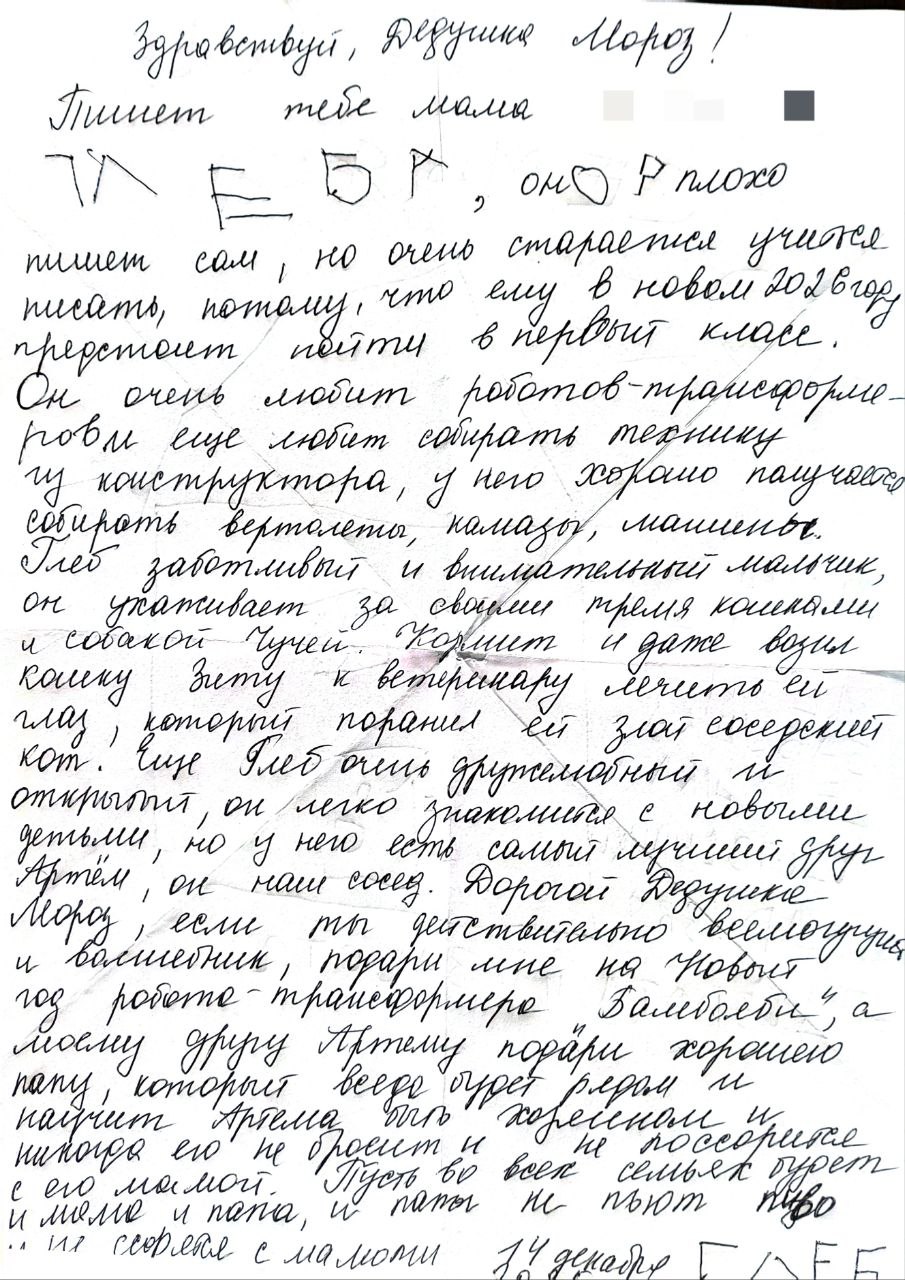 Здравствуй, Дедушка Мороз!
Пишет тебе мама
ГЛЕБА, он плохо
пишет сам, но очень старается учится
писать, потому, что ему в новом 2026 году
предстоит пойти в первый класс.
Он очень любит роботов-трансформе-
ров и еще любит собирать технику
из конструктора, у него хорошо получается
собирать вертолеты, камазы, машины.
Глеб заботливый и внимательный мальчик,
он ухаживает за своими тремя кошками
и собакой Чучей. Кормит и даже возил
кошку Зиту к ветеринару лечить ей
глаз, который поранил ей злой соседский
кот. Еще Глеб очень дружелюбный и
открытый, он легко знакомится с новыми
детьми, но у него есть самый лучший друг
Артём, он наш сосед. Дорогой Дедушка
Мороз, если ты действительно всемогущий
и волшебник, подари мне на Новый
год робота-трансформера „Бамблби", а
моему другу Артему подари хорошего
папу, который всегда будет рядом и
научит Артема быть хозяином и
никогда его не бросит и не поссорится
с его мамой. Пусть во всех семьях будет
и мама и папа, и папы не пьют пиво
не ссорятся с мамами 14 декабря ГЛЕБ